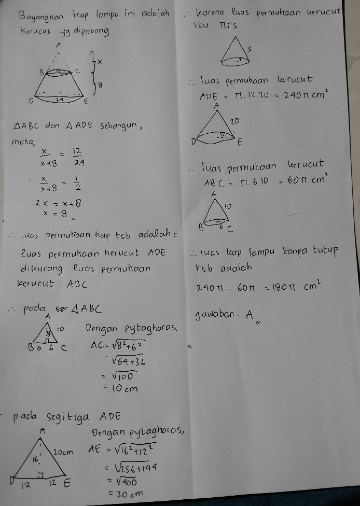 Bayangkan kap lampu ini adalah
kerucut yg dipotong
A
x
B
C
8
D
24
E
△ABC dan △ADE sebangun,
maka,
x/x+8 = 12/24
x/x+8 = 1/2
2x = x+8
x = 8
∴ luas permukaan kap tsb adalah =
luas permukaan kerucut ADE
dikurang luas permukaan
kerucut ABC
∴ pada △ABC
A
8
10
B 6 6 C
Dengan pytaghoras,
AC = √8²+6²
= √64+36
= √100
= 10 cm
pada segitiga ADE
A
16
20cm
D 12 12 E
Dengan pytaghoras,
AE = √16²+12²
= √256+144
= √400
= 20 cm
∴ karena luas permukaan kerucut
itu πrs
s
∴ luas permukaan kerucut
ADE = π.12.20 = 240π cm²
A
20
D
E
∴ luas permukaan kerucut
ABC = π.6.10 = 60π cm²
A
10
B 6 C
∴ luas kap lampu tanpa tutup
tsb adalah
240π - 60π = 180π cm²
jawaban : A